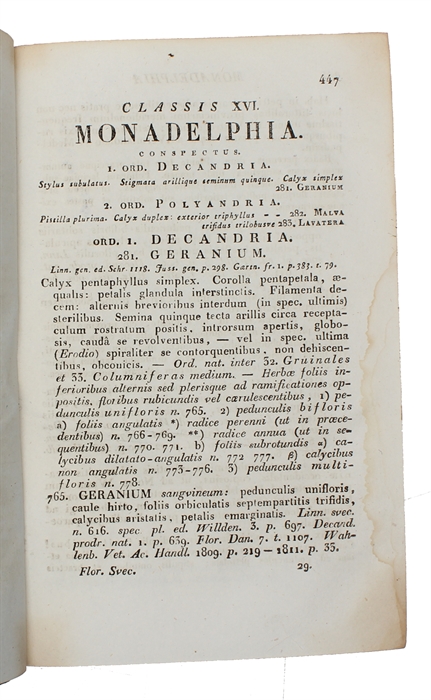 447
CLASSIS XVI.
MONADELPHIA.
CONSPECTUS.
1. ORD. DECANDRIA.
Stylus subulatus. Stigmata arillique seminum quinque. Calyx simplex
281. GERANIUM
2. ORD. POLYANDRIA.
Pistilla plurima. Calyx duplex: exterior triphyllus - - 282. MALVA
trifidus trilobusve 283. LAVATERA
ORD. 1. DECANDRIA.
281. GERANIUM.
Linn. gen. ed. Schr. 1118. Juss. gen. p. 298. Gartn. fr. 1. p. 383. t. 79.
Calyx pentaphyllus simplex. Corolla pentapetala, æ-
qualis: petalis glandula interstinctis. Filamenta de-
cem: alternis brevioribus interdum (in spec. ultimis)
sterilibus. Semina quinque tecta arillis circa recepta-
culum rostratum positis, introrsum apertis, globo-
sis, caudâ se revolventibus, — vel in spec. ultima
(Erodio) spiraliter se contorquentibus, non dehiscen-
tibus, obconicis. — Ord. nat. inter 32. Gruinales
et 33. Columniferas medium. — Herbæ foliis in-
ferioribus alternis sed plerisque ad ramificationes op-
positis, floribus rubicundis vel cærulescentibus, 1) pe-
dunculis unifloris n. 765. 2) pedunculis bifloris
a) foliis angulatis *) radice perenni (ut in præce-
dentibus) n. 766-769. **) radice annua (ut in se-
quentibus) n. 770. 771. b) foliis subrotundis α) ca-
lycibus dilatato-angulatis n. 772 777. β) calycibus
non angulatis n. 773-776. 3) pedunculis multi-
floris n. 778.
765. GERANIUM sangvineum: pedunculis unifloris,
caule hirto, foliis orbiculatis septempartitis trifidis,
calycibus aristatis, petalis emarginatis. Linn. svec.
n. 616. spec. pl. ed. Willden. 3. p. 697. Decand.
prodr. nat. 1. p. 639. Flor. Dan. 7. t. 1107. Wah-
lenb. Vet. Ac. Handl. 1809. p. 219 — 1811. p. 35.
Flor. Svec. 29.